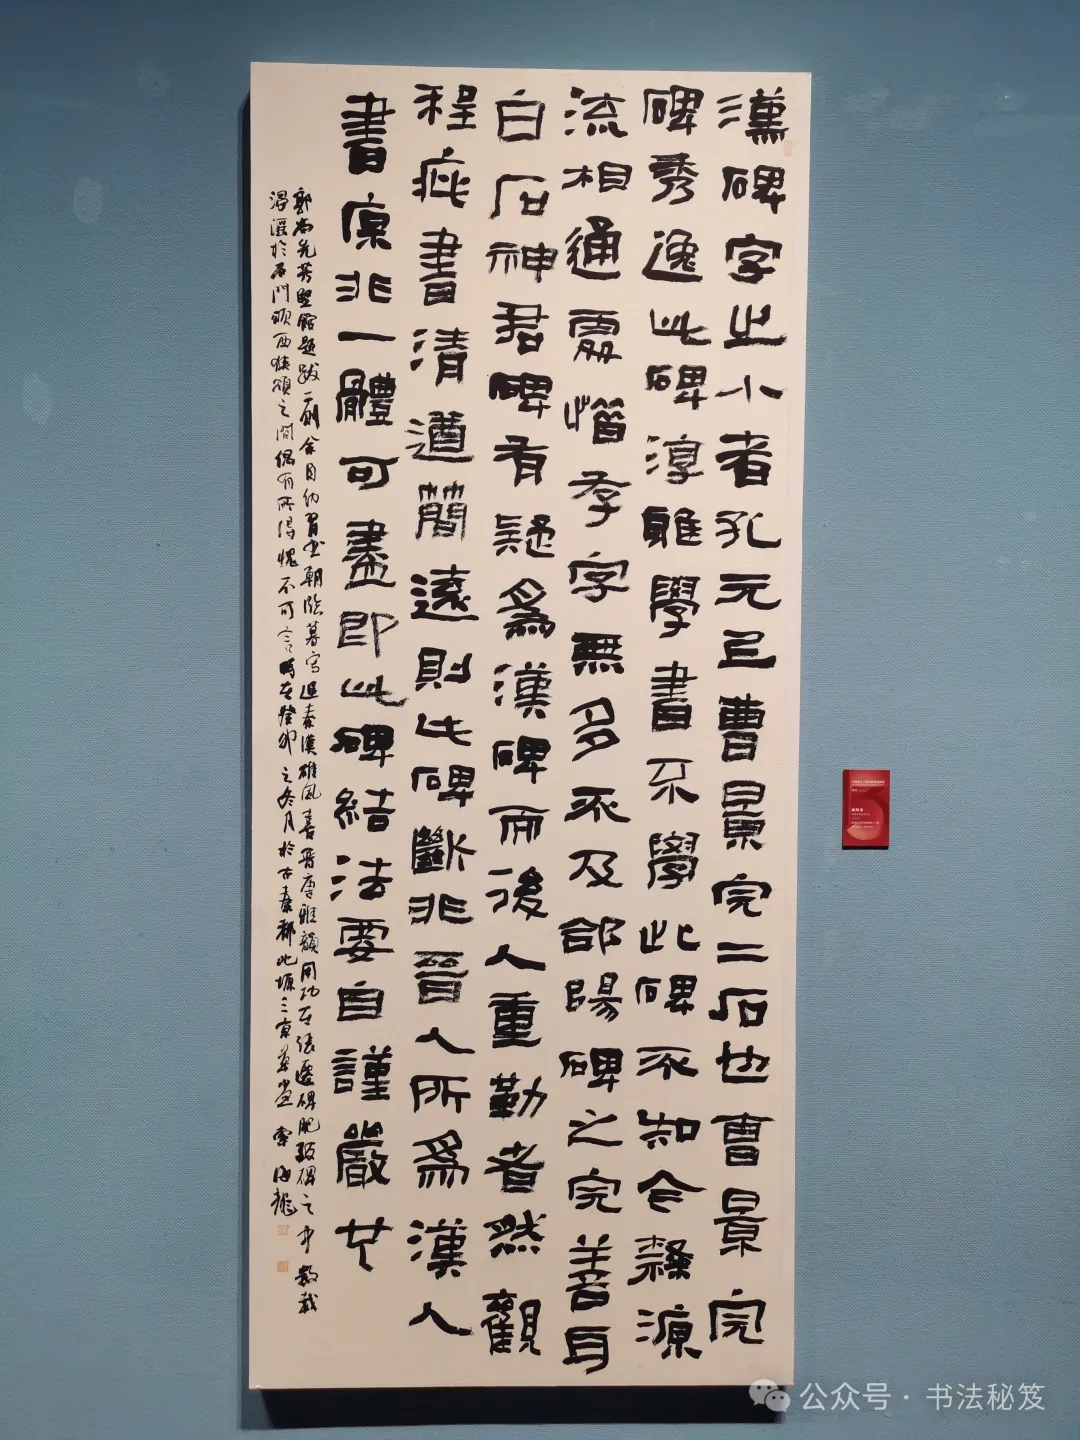 漢碑字之小者孔元上曹景完二石也曹景完
碑秀逸此碑淳雖學書不學此碑不知今隸源
流相通處惜存字無多不及郃陽碑之完善耳
白石神君碑有疑為漢碑而後人重勒者然觀
程疵書清遒簡遠則此碑斷非晉人所為漢人
書原非一體可盡即此碑結法要自謹嚴世
郭尚先芳堅館題跋一則余自幼習書朝臨暮寫追秦漢雄風喜晉唐雅韻用功在張遷碑肥致碑之中數載
浸淫於石門頌西狹頌之間偶有所得愧不可言時在癸卯之冬月於古秦都北塬三京草堂
公众号·书法秘笈